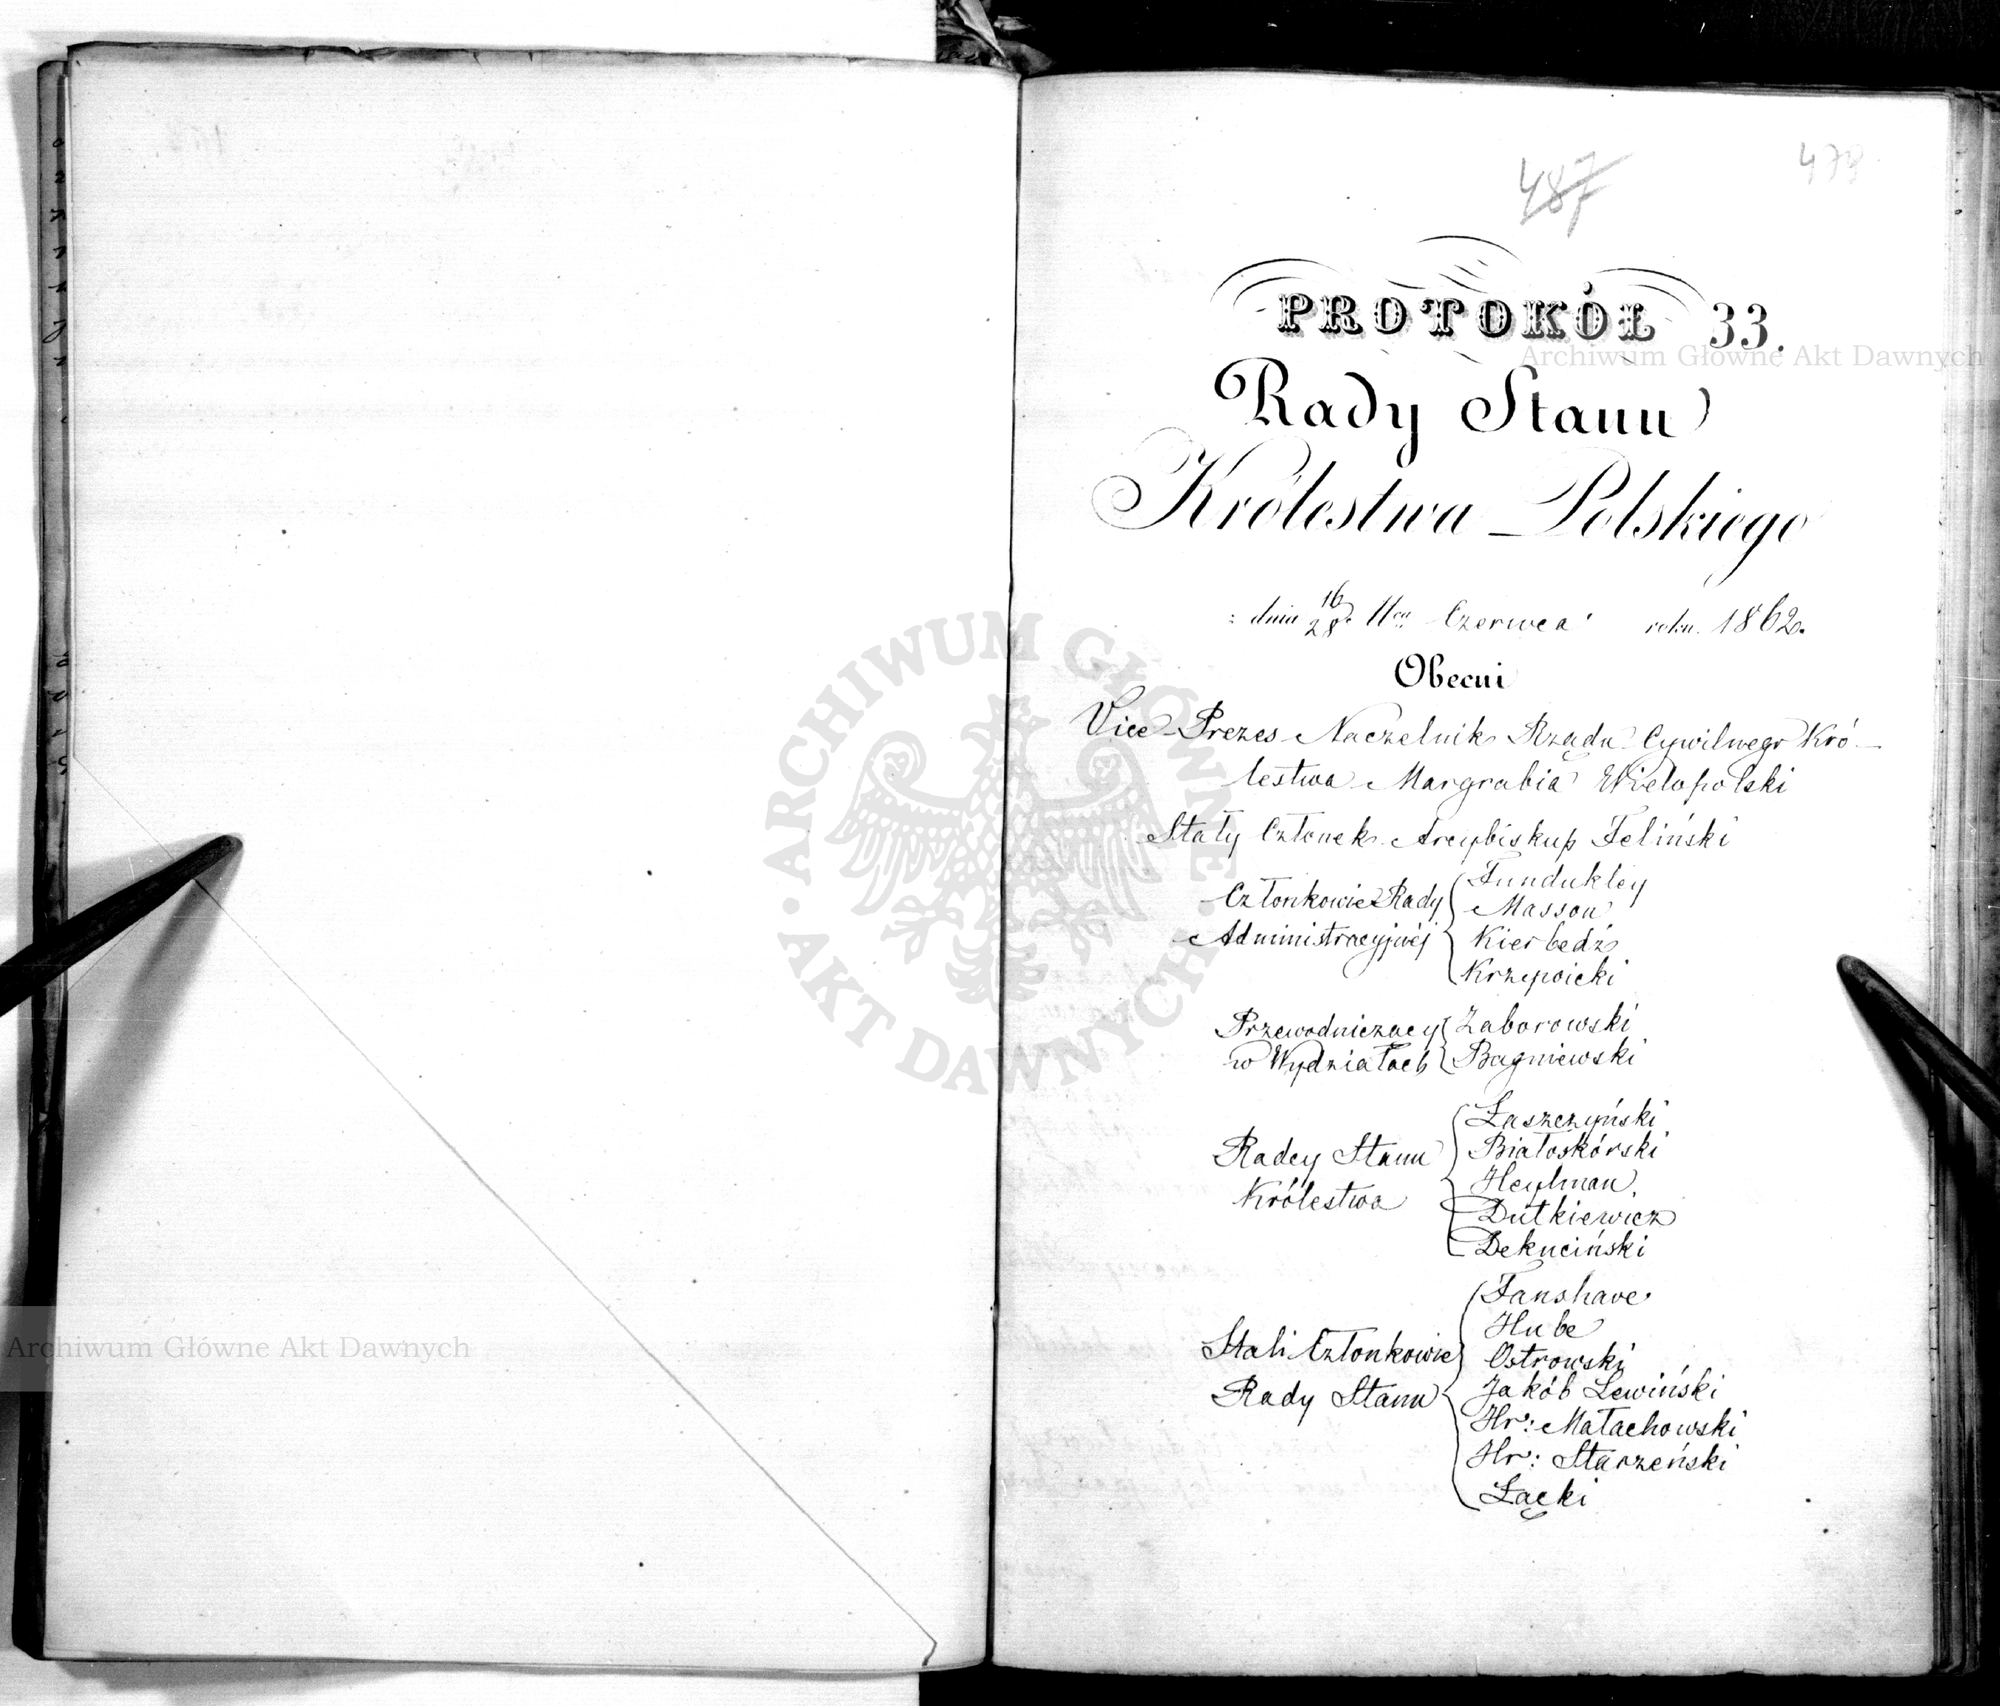 487
479
PROTOKÓŁ 33.
Rady Stanu
Królestwa Polskiego
dnia 16/28 Czerwca roku 1862.
Obecni
Vice-Prezes Naczelnik Rządu Cywilnego Kró-
lestwa Margrabia Wielopolski
Stały Członek Arcybiskup Feliński
Członkowie Rady
Administracyjnéj
Fundukley
Masson
Kierbedź
Krzywicki
Przewodniczący
w Wydziałach
Zaborowski
Bagniewski
Radcy Stanu
Królestwa
Łaszczyński
Białoskórski
Heylman
Dutkiewicz
Dekuciński
Stali Członkowie
Rady Stanu
Fanshave
Hube
Ostrowski
Jakób Lewiński
Hr: Małachowski
Hr: Starzeński
Łącki
Archiwum Główne Akt Dawnych
ARCHIWUM GŁÓWNE · AKT DAWNYCH ·
Archiwum Główne Akt Dawnych